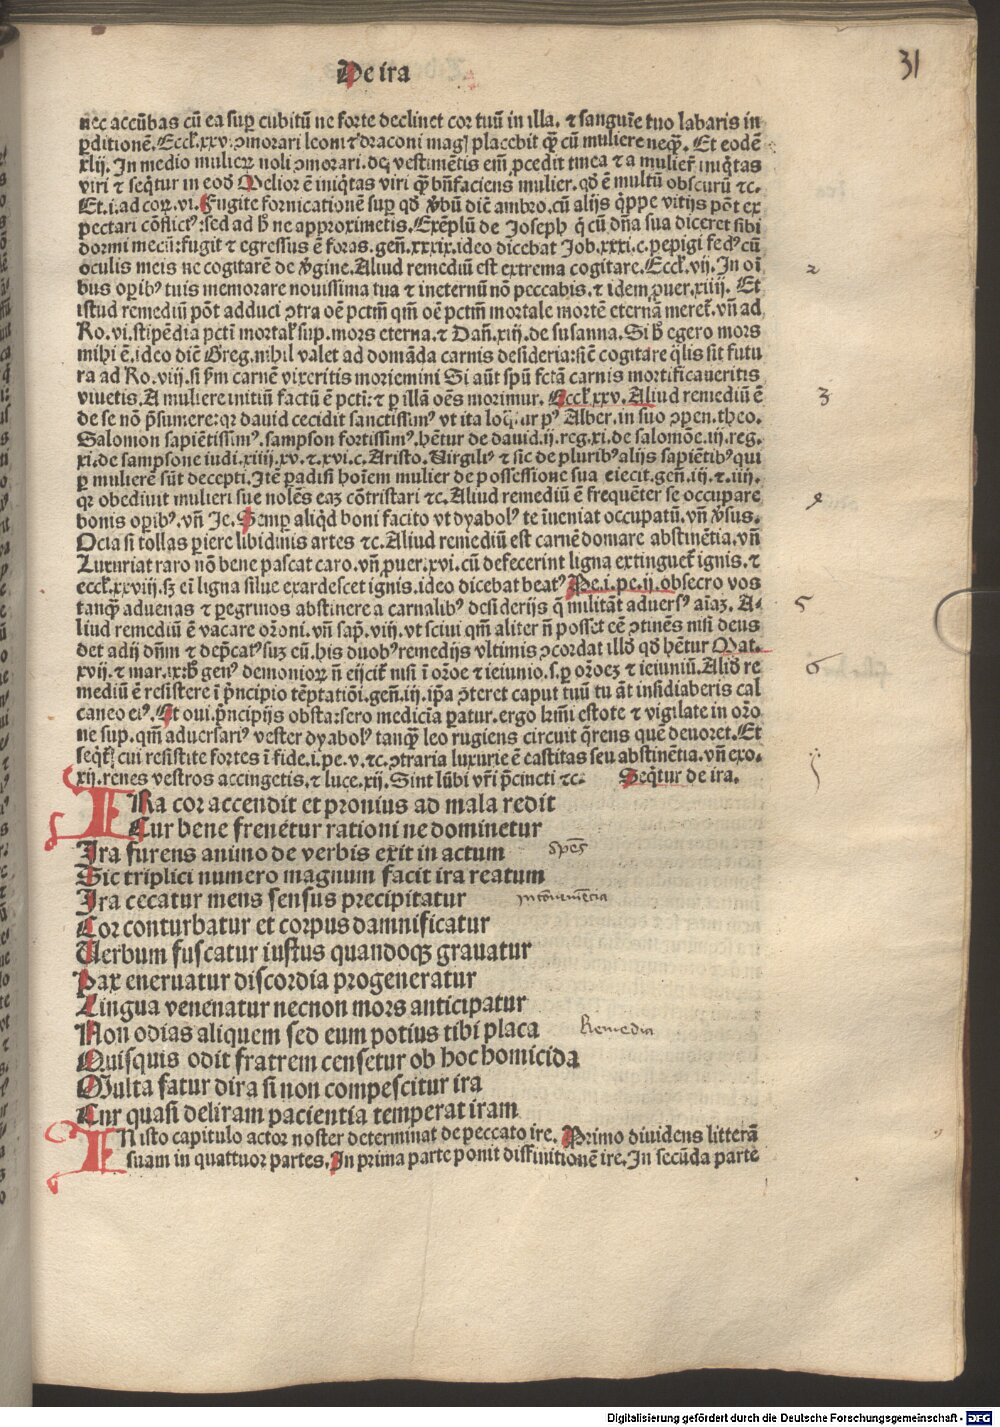 31
De ira
nec accūbas cū ea sup cubitū ne forte declinet cor tuū in illa. ⁊ sanguīe tuo labaris in
ꝑditionē. Eccl̓. xxv. ꝯmorari leoni ⁊ draconi magꝭ placebit q̄ꝫ cū muliere neqꝫ. Et eodē
xlij. In medio mulierꝝ noli ꝯmorari. de vestimētis em̄ ꝓcedit tinea ⁊ a mulier̄ iniq̇tas
viri ⁊ seq̇tur in eod̄ Melior ē iniq̇tas viri q̄ꝫ bn̄faciens mulier. qd̄ ē multū obscurū ⁊c.
Et .i. ad coꝝ. vi. Fugite fornicationē sup qd̄ v̄bū dic̄ ambro. cū alijs q̇ppe vitijs pōt ex
pectari cōflictꝰ: sed ad h̄ ne approximetis. Exēplū de Joseph q̇ cū dn̄a sua diceret sibi
dormi mecū: fugit ⁊ egressus ē foras. gen̄. xxxix. ideo dicebat Job. xxxi. c. pepigi fedꝰ cū
oculis meis ne cogitarē de v̄gine. Aliud remediū est extrema cogitare. Eccl̓. vij. In oī
bus oꝑibꝰ tuis memorare nouissima tua ⁊ ineternū nō peccabis. ⁊ idem ꝓuer. xiiij. Et
istud remediū pōt adduci ꝯtra oē pctm̄ qm̄ oē pctm̄ mortale mortē eternā meret̄. vn̄ ad
Ro. vi. stipēdia pcti mortal̓ sup. mors eterna. ⁊ Dan̄. xiij. de susanna. Si h̄ egero mors
mihi ē. ideo dic̄ Greg. nihil valet ad domāda carnis desideria: sic̄ cogitare q̇lis sit futu
ra ad Ro. viij. si ẜm carnē vixeritis moriemini Si aūt spū fctā carnis mortificaueritis
viuetis. A muliere initiū factū ē pcti: ⁊ ꝑ illā oēs morimur. Eccl̓. xxv. Aliud remediū ē
de se nō p̄sumere: qꝛ dauid cecidit sanctissimꝰ vt ita loq̇tur pꝰ Alber. in suo ꝯpen. theo.
Salomon sapiētissimꝰ. sampson fortissimꝰ. hētur de dauid. ij. reg. xi. de salomōe. iij. reg.
xi. de sampsone iudi. xiiij. xv. ⁊. xvi. c. Aristo. Virgiliꝰ ⁊ sic de pluribꝰ alijs sapiētibꝰ qui
ꝑ mulierē sūt decepti. Itē ꝑadisi hoīem mulier de possessione sua eiecit. gen̄. iij. ⁊. iiij.
qꝛ obediuit mulieri sue nolēs eaꝫ cōtristari ⁊c. Aliud remediū ē frequēter se occupare
bonis oꝑibꝰ. vn̄ Je. Semꝑ aliq̇d boni facito vt dyabolꝰ te īueniat occupatū. vn̄ v̄sus.
Ocia si tollas ꝑiere libidinis artes ⁊c. Aliud remediū est carnē domare abstinētia. vn̄
Luxuriat raro nō bene pascat caro. vn̄ ꝓuer. xvi. cū defecerint ligna extinguet̄ ignis. ⁊
eccl̓. xxviij. sꝫ em̄ ligna silue exardescet ignis. ideo dicebat beatꝰ Pe. i. pe. ij. obsecro vos
tanq̄ꝫ aduenas ⁊ ꝑegrinos abstinere a carnalibꝰ desiderijs q̄ militāt aduersꝰ aīaꝫ. A-
liud remediū ē vacare orōni. vn̄ sap. viij. vt sciui qm̄ aliter n̄ posset eē ꝯtinēs nisi deus
det adij dn̄m ⁊ dep̄catꝰ suꝫ cū. his duobꝰ remedijs vltimis ꝯcordat illd̓ qd̄ hētur Mat.
xvij. ⁊ mar. ix. h̄ genꝰ demoniorꝝ n̄ eijcit̄ nisi ī orōe ⁊ ieiunio. s. ꝑ orōeꝫ ⁊ ieiuniū. Alid̓ re
mediū ē resistere ī p̄ncipio tēptatiōi. gen̄. iij. ip̄a ꝯteret caput tuū tu āt insidiaberis cal
caneo eiꝰ. Et oui. p̄ncipijs obsta: sero medicīa ꝑatur. ergo hr̄mi estote ⁊ vigilate in orō
ne sup. qm̄ aduersariꝰ vester dyabolꝰ tanq̄ꝫ leo rugiens circuit q̄rens quē deuoret. Et
seq̇t̄ cui resistite fortes ī fide. i. pe. v. ⁊c. ꝯtraria luxurie ē castitas seu abstinētia. vn̄ exo.
xij. renes vestros accingetis. ⁊ luce. xij. Sint lūbi vr̄i p̄cincti ⁊c. Seq̇tur de ira.
IRa cor accendit et pronius ad mala redit
Cur bene frenētur rationi ne dominetur
Ira furens animo de verbis exit in actum
Sic triplici numero magnum facit ira reatum
Ira cecatur mens sensus precipitatur
Cor conturbatur et corpus damnificatur
Verbum fuscatur iustus quandoqꝫ grauatur
Pax eneruatur discordia progeneratur
Lingua venenatur necnon mors anticipatur
Non odias aliquem sed eum potius tibi placa
Remedia
Quisquis odit fratrem censetur ob hoc homicida
Multa fatur dira si non compescitur ira
Cur quasi deliram pacientia temperat iram
IN isto capitulo actor noster determinat de peccato ire. Primo diuidens litterā
suam in quattuor partes. In prima parte ponit diffinitionē ire. In secūda parte
2
3
4
5
6
Digitalisierung gefördert durch die Deutsche Forschungsgemeinschaft - DFG